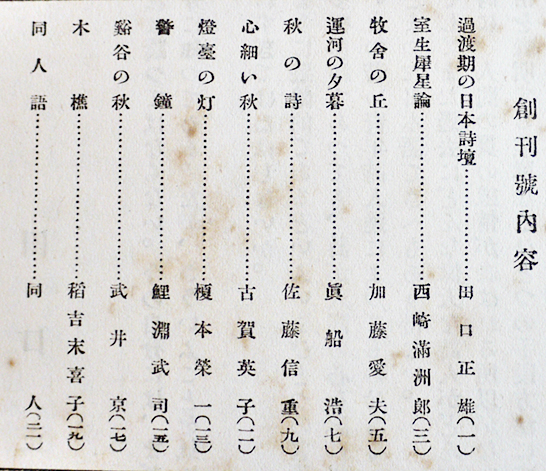 創刊號內容
過渡期の日本詩壇……………田口正雄(一)
室生犀星論……………西崎滿洲郎(三)
牧舍の丘……………加藤愛夫(五)
運河の夕暮……………眞船浩(七)
秋の詩……………佐藤信重(九)
心細い秋……………古賀英子(一一)
燈臺の灯……………榎本榮一(一三)
警鐘……………鯉淵武司(一五)
谿谷の秋……………武井京(一七)
木樵……………稻吉末喜子(一九)
同人語……………同人(二一)